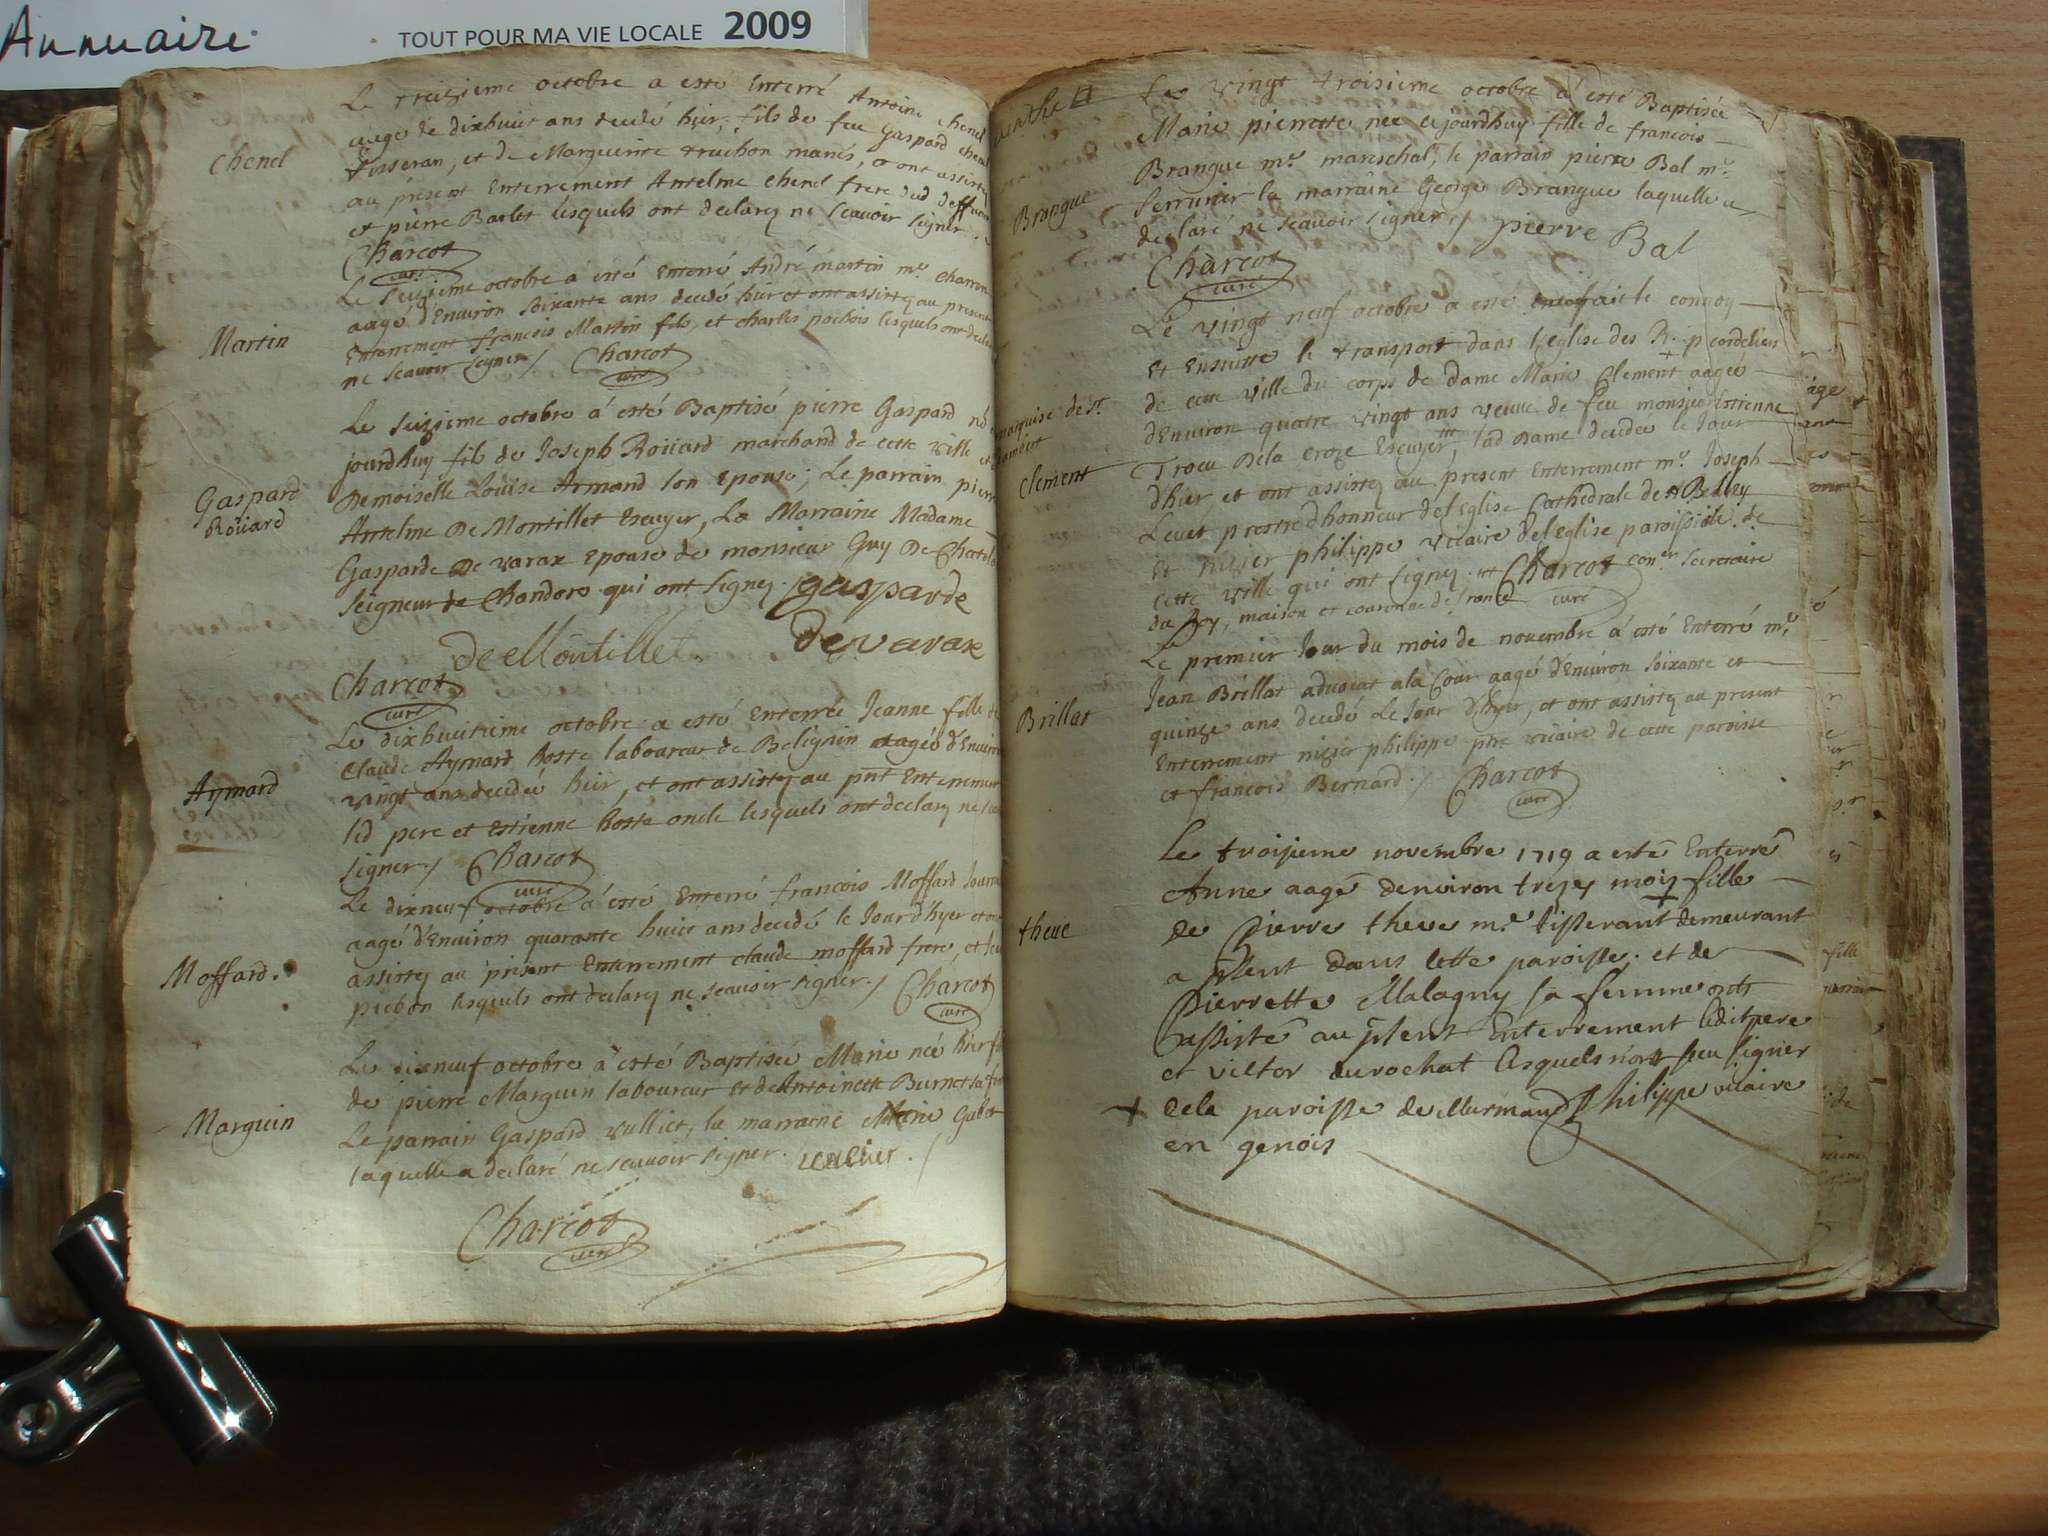 Annuaire
TOUT POUR MA VIE LOCALE 2009
Le treizieme octobre a esté Enterré Antoine Chenel
aage de dixhuict ans decedé hyer, fils de feu Gaspard Chenel
tisseran, et de Marguerite truchon mariés, et ont assistez
au present Enterrement Antelme Chenel frere dud deffunct
et pierre Barlet lesquels ont declarez ne scavoir signer
Chenel
Charcot
curé
Le seizieme octobre a esté Enterré André martin me charron
aagé d'Environ soixante ans decedé hier et ont assistez au present
Enterrement francois Martin fils, et charles pochois lesquels ont declarez
ne scavoir signer / Charcot
curé
Martin
Le seizieme octobre á esté Baptisé pierre Gaspard né
jourdhuy fils de Joseph Roüard marchand de cette ville et
Demoiselle Louise Armand son Epouse; Le parrain pierre
Antelme De Montillet Escuyer, La Marraine Madame
Gasparde De varax Epouse de monsieur Guy De
seigneur de Chandore qui ont signez. gasparde
de Montillet. devarax
Gaspard
Roüard
Charcot
curé
Le dixhuitieme octobre a esté Enterrée Jeanne fille de
Claude Aymard hoste laboureur de Belignin aagée d'Environ
vingt ans decedée hier, et ont assistez au pnt Enterrement
led pere et Estienne hoste oncle lesquels ont declarez ne
signer / Charcot
curé
Aymard
Le dixneuf octobre á esté Enterré francois Moffard
aagé d'Environ quarante huict ans decedé le Jour d'hyer et ont
assistez au present Enterrement claude moffard frere, et
pichon lesquels ont declarez ne scavoir signer / Charcot
curé
Moffard.
Le dixneuf octobre à esté Baptisée Marie née hier
de pierre Marguin laboureur et de Antoinette Burnet sa
Le parrain Gaspard vulliet, la marraine Marie
laquelle a declaré ne scavoir signer. vulliet
Marguin
Charcot
curé
Le vingt troisieme octobre á esté Baptisée
Marie pierrette née cejourdhuy fille de francois
Brangue me mareschal, le parrain pierre Bal me
serrurier la marraine George Brangue laquelle a
declaré ne scavoir signer / pierre Bal
Brangue
Charcot
curé
Le vingt neuf octobre a esté fait le convoy
Et Ensuitte le transport dans l'eglise des R. p cordeliers
de cette ville du corps de Dame Marie Clement aagée
d'Environ quatre vingt ans veuve de feu monsieur Estienne
Trocu Dela croze Escuyer, lad Dame decedée le Jour
d'hier, et ont assistez au present Enterrement me Joseph
Levet prestre d'honneur de l'Eglise Cathedrale de Belley
et nizier philippe vicaire de l'eglise paroissiale de
cette ville qui ont signez. Charcot coner secretaire
du Roy, maison et couronne de france curé
marquise de St
Clement
Le premier Jour du mois de novembre á esté Enterré me
Jean Brillat advocat a la Cour aagé d'Environ soixante et
quinze ans decedé Le Jour d'hyer, et ont assistez au present
Enterrement nizier philippe ptre vicaire de cette paroisse
et francois Bernard / Charcot
curé
Brillat
Le troisieme novembre 1719 a esté Enterré
Anne aagé denviron trezes mois fille
de Pierre theve me tisserant demeurant
a present dans cette paroisse. et de
Pierrette Malagny sa femme ont
assisté au present Enterrement ledit pere
et victor durochat lesquels n'ont sceu signer
+ dela paroisse de Murmand Philippe vicaire
en genois
theve